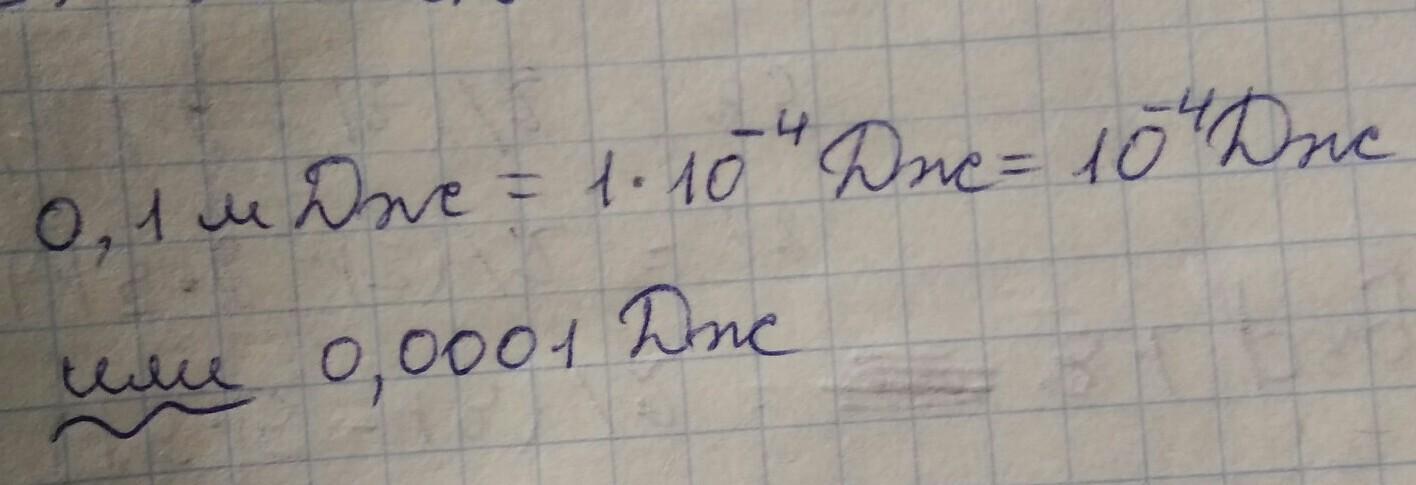 0,1 мДж = 1·10⁻⁴ Дж = 10⁻⁴ Дж
или 0,0001 Дж